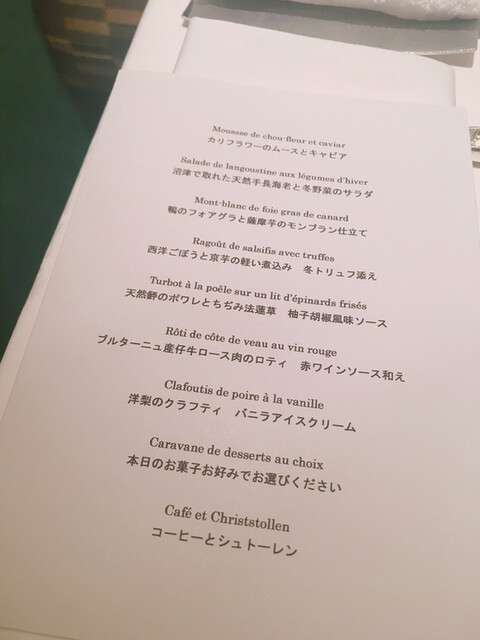 Mousse de chou-fleur et caviar
カリフラワーのムースとキャビア
Salade de langoustine aux légumes d'hiver
沼津で取れた天然手長海老と冬野菜のサラダ
Mont-blanc de foie gras de canard
鴨のフォアグラと薩摩芋のモンブラン仕立て
Ragoût de salsifis avec truffes
西洋ごぼうと京芋の軽い煮込み 冬トリュフ添え
Turbot à la poêle sur un lit d'épinards frisés
天然鮃のポワレとちぢみ法蓮草 柚子胡椒風味ソース
Rôti de côte de veau au vin rouge
ブルターニュ産仔牛ロース肉のロティ 赤ワインソース和え
Clafoutis de poire à la vanille
洋梨のクラフティ バニラアイスクリーム
Caravane de desserts au choix
本日のお菓子お好みでお選びください
Café et Christstollen
コーヒーとシュトーレン